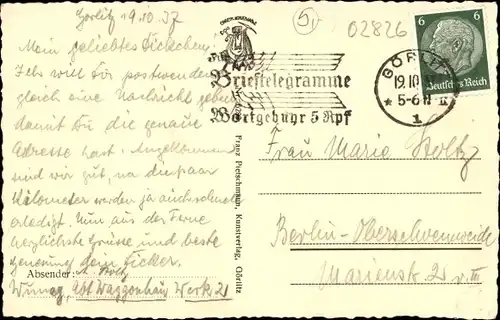 Görlitz 19.10.37
Mein geliebtes Dickchen!
Ich will Dir postwendend
gleich eine Nachricht geben
damit Du die genaue
Adresse hast. Angekommen
sind wir gut, na die paar
Kilometer werden ja auch schnell
erledigt. Nun aus der Ferne
herzlichste Grüsse und beste
Genesung Dein Dicker.
Absender: A. Stoltz
Wumag, Abt Waggonbau Werk 2
Franz Pietschmann, Kunstverlag, Görlitz
5
02826
Brieftelegramme
Wortgebühr 5 Rpf
GÖRLITZ
19.10.37
* 5-6 N
1
6 6
Deutsches Reich
Frau Marie Stoltz
Berlin-Oberschöneweide
Marienstr. 2